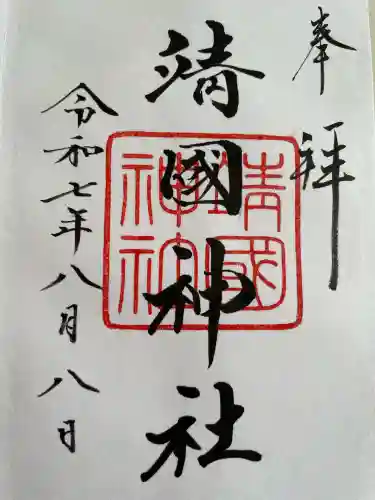 奉拝
靖國神社
靖國
神社
令和七年八月八日